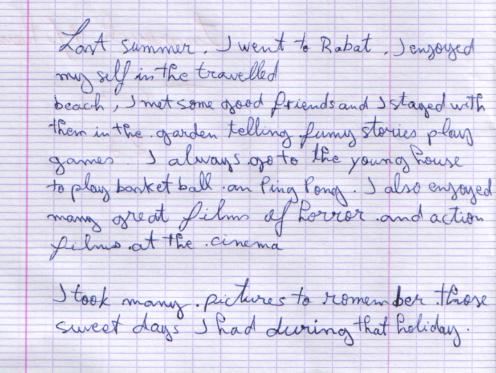 Last summer. I went to Rabat. I enjoyed
my self in the travelled
beach, I met some good friends and I stayed with
them in the. garden telling funny stories play
games. I always. go to the young house
to play basket ball. an Ping Pong. I also enjoyed
many great films of horror. and action
films. at the. cinema
I took many. pictures to romember. those
sweet days I had during that holiday.